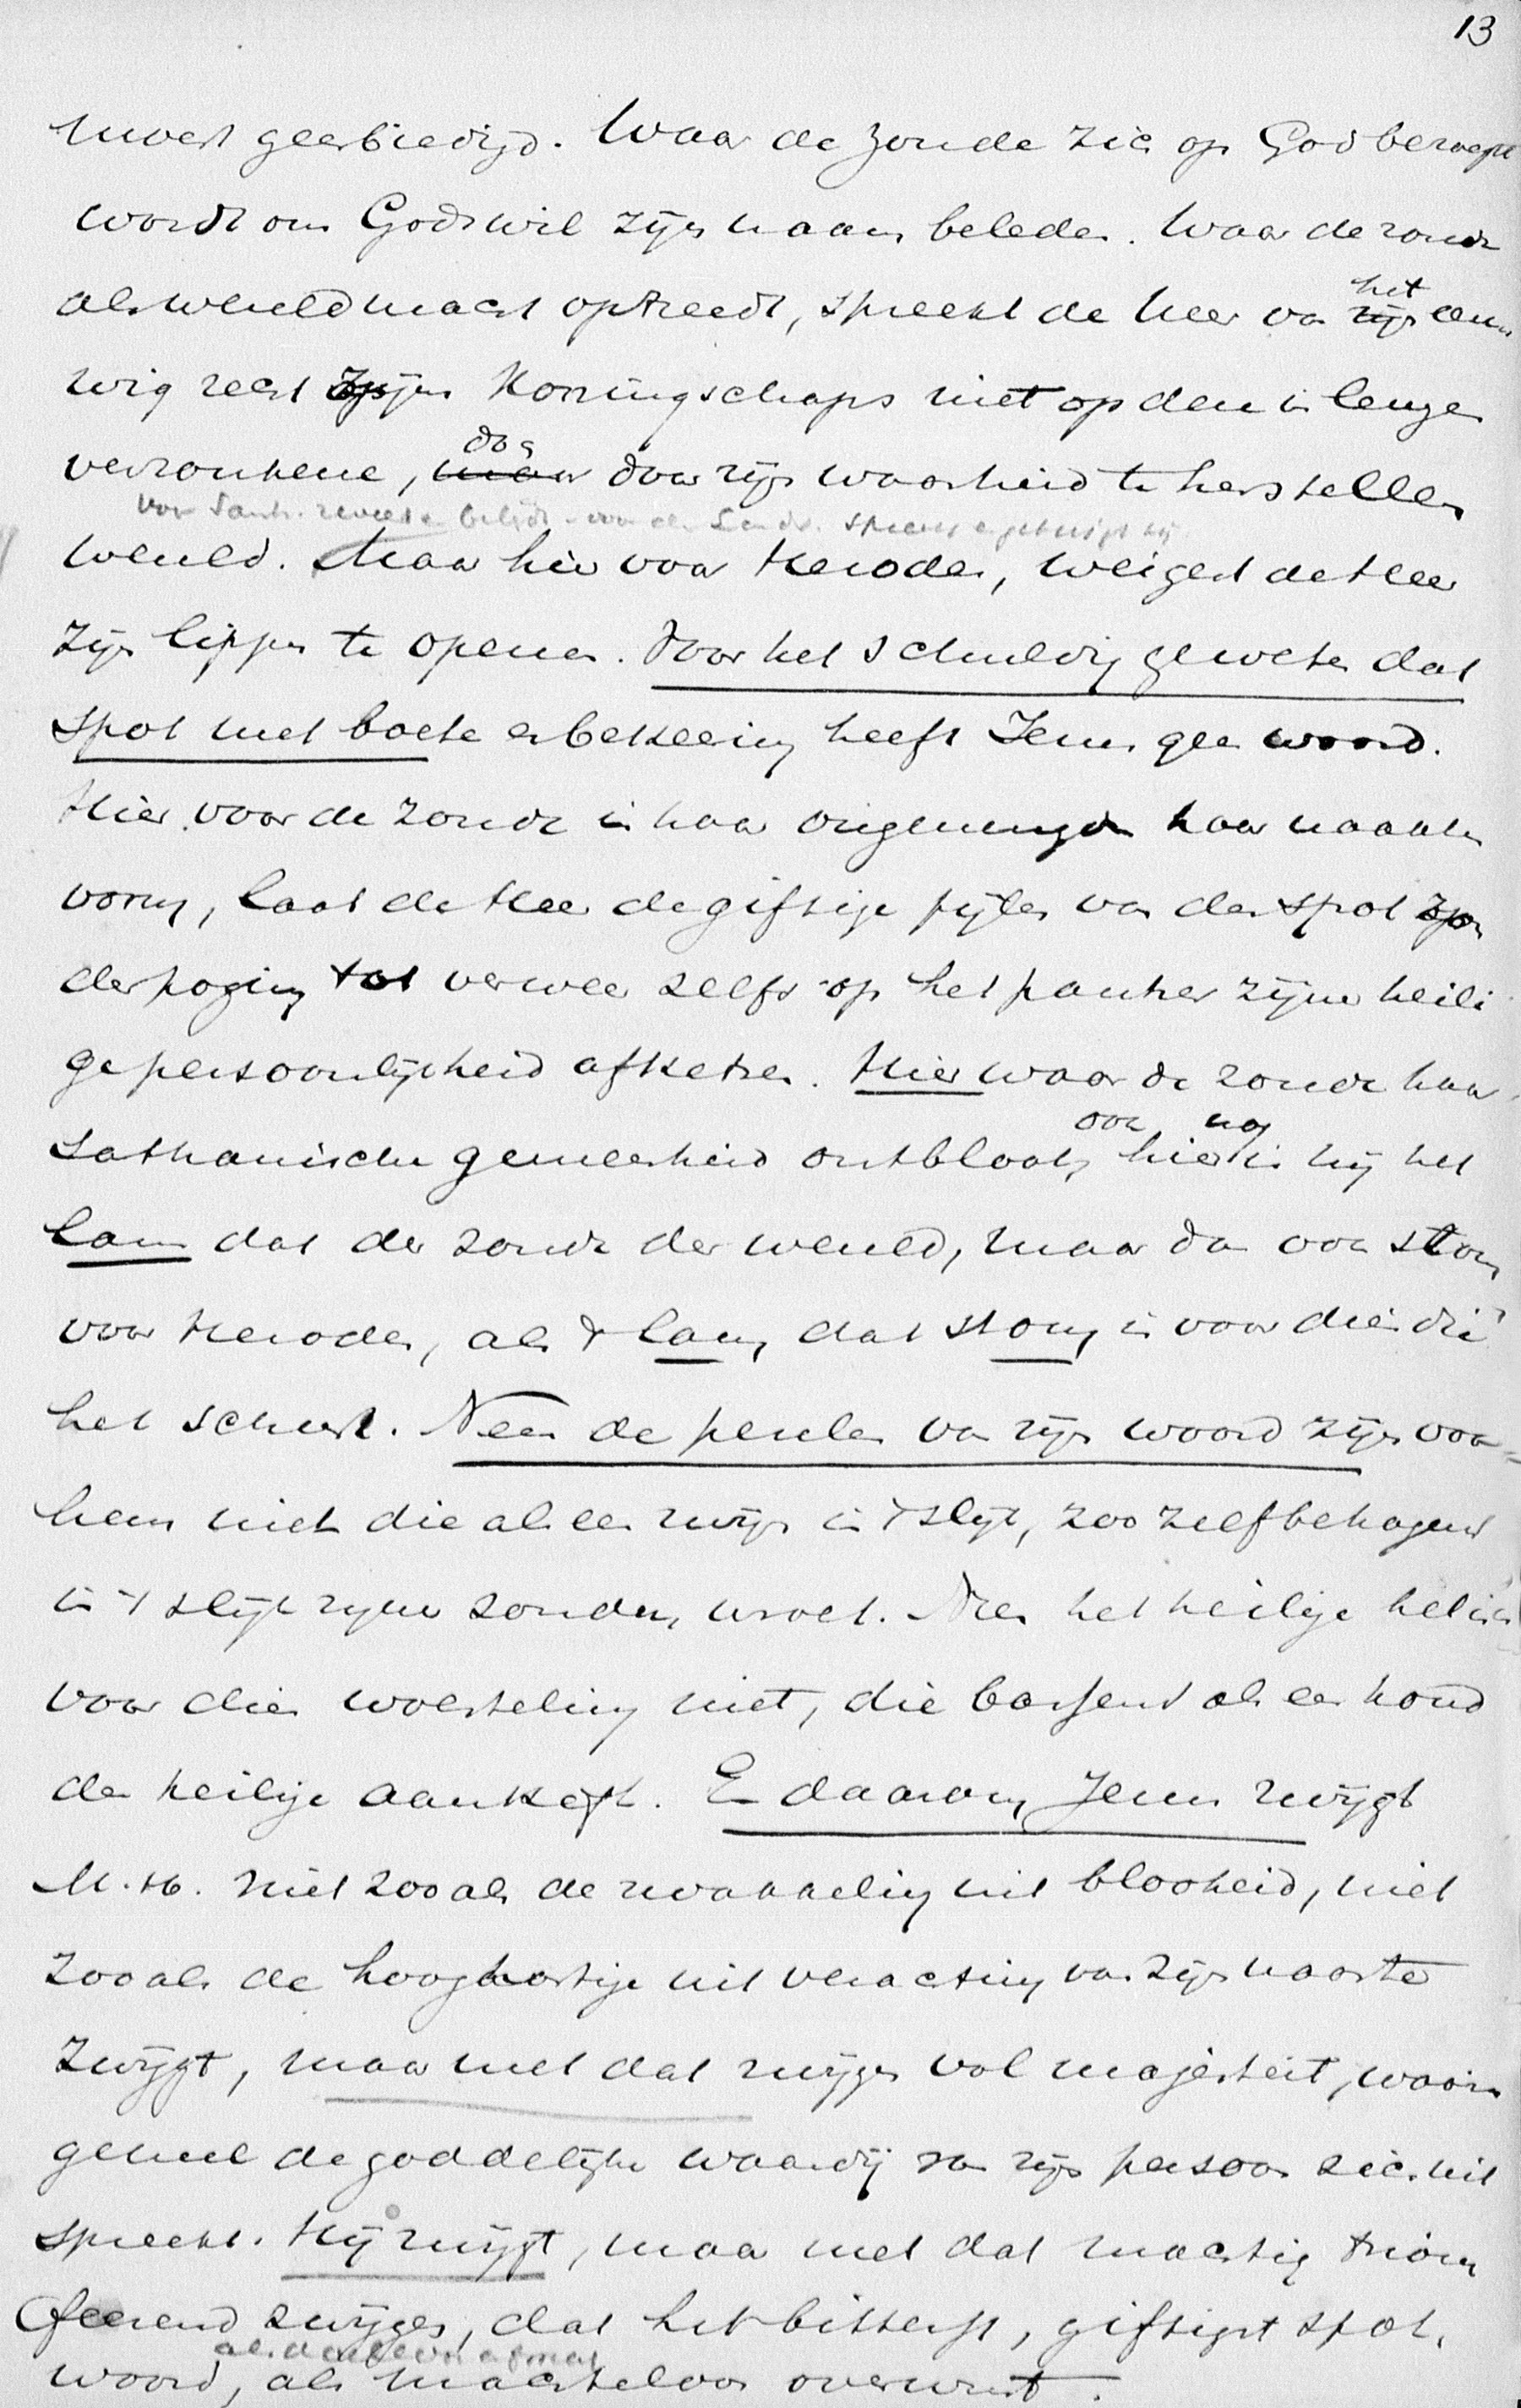 13
moest geerbiedigd. Waar de zonde zich op God beroept
wordt om Gods wil zijn naam beleden. Waar de zonde
als wereldmacht optreedt, spreekt de Heer van het eeuw
wig recht zijns Koningschaps niet op den in leugen
verzonkene, doch door zijn waarheid te herstellen
voor Sanh. belijdt voor den spreekt getuigt hij
wereld. Maar hier voor Herodes, weigert de Heer
zijn lippen te openen. Voor het schuldig geweten dat
spot met boete en bekeering heeft Jezus geen woord.
Hier voor de zonde in haar ongemengden haar naakten
vorm, laat de Heer de giftige pijlen van den spot zon
der poging tot verweer zelfs op het pantser zijner heili
ge persoonlijkheid afketsen. Hier waar de zonde haar
sathanische gemeenheid ontbloot, ook hier nog is hij het
Lam dat de zonde der wereld, maar dan ook stom
voor Herodes, als 't Lam, dat stom is voor dien die
het scheert. Neen de peerlen van zijn woord zijn voor
hem niet die als een zwijn in 't slijk, zoo zelfbehagend
in 't slijk zijner zonden, wroet. Neen het heilige het is
voor dien woesteling niet, die bassend als een hond
den heilige aankeft. En daarom, Jezus zwijgt
M.H. niet zooals de zwakkeling uit blooheid, niet
zooals de hooghartige uit verachting van zijn naaste
zwijgt, maar met dat zwijgen vol majesteit, waarin
geheel de goddelijke waardij van zijn persoon zich uit
spreekt. Hij zwijgt, maar met dat machtig triom
feerend zwijgen, dat het bitterst, giftigst spot,
woord, als machteloos overwint.